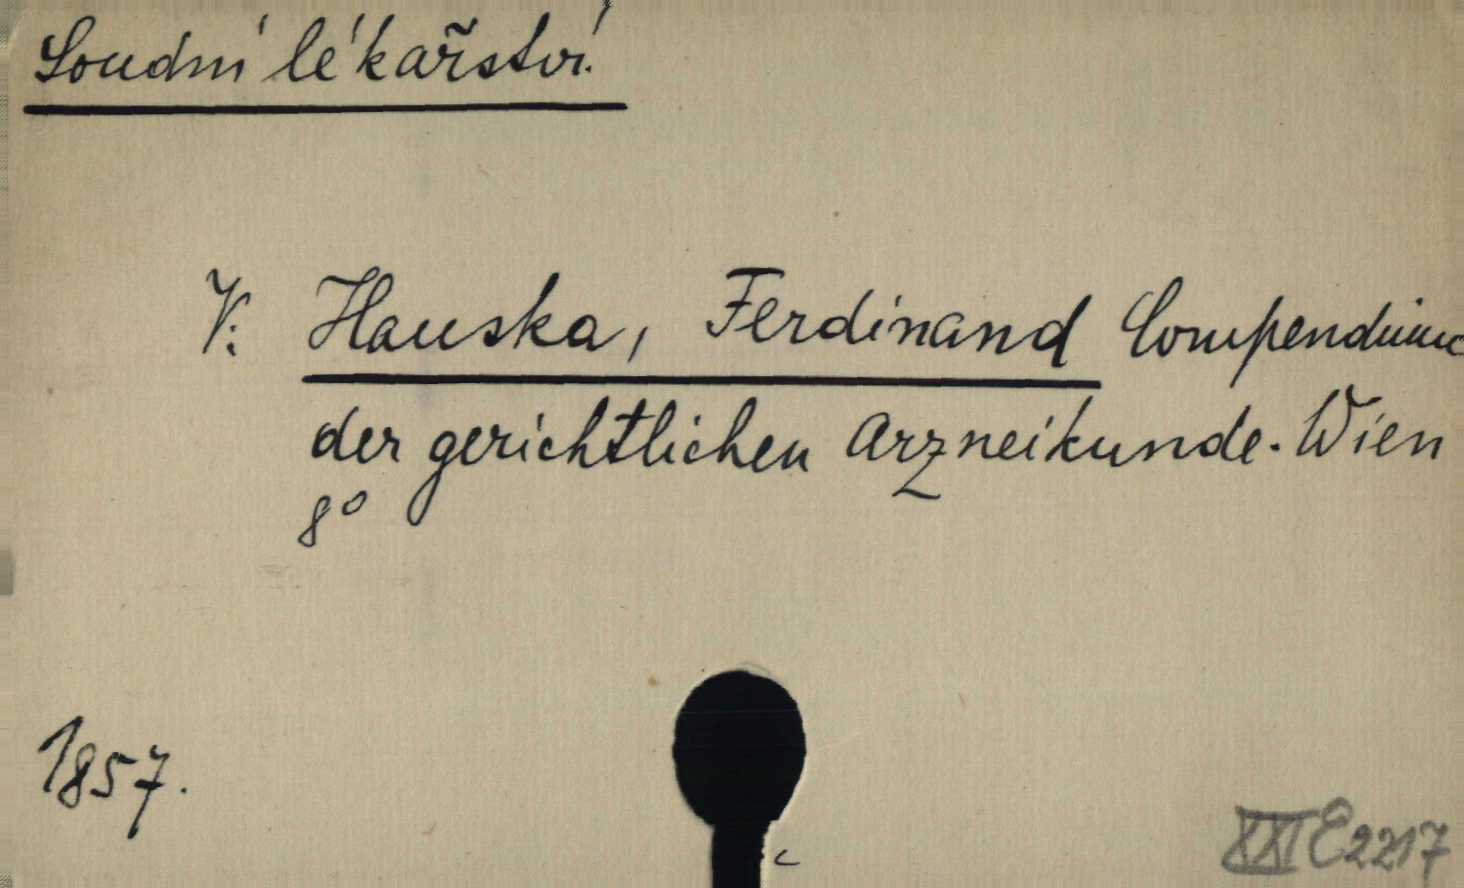 Soudní lékařství.
V: Hauska, Ferdinand Compendium
der gerichtlichen Arzneikunde. Wien
8°
1857.
XXI E 2217